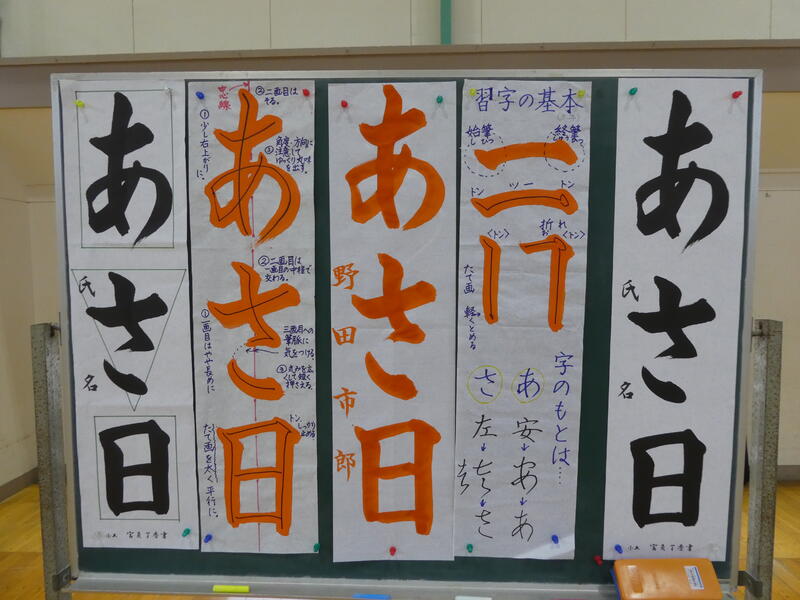 あさ日
氏
名
中心線
②二画目は
そる。
①少し右上がりに。
③角度・方向に
注意して
ゆっくり丸味
を出す。
あさ日
②二画目は
一画目の中程で
交わる。
①一画目はやや長めに
三画目への
筆脈に
気をつける。
③丸みを広
くして短く
押さえる。
トン
しっかり
止める
たて画を太く平行に。
あさ日
野田市郎
習字の基本
始筆
しひつ
終筆
しゅうひつ
トン
ツー
トン
〈トン〉
折れ
お
〈トン〉
たて画
軽くとめる
字のもとは…
あ
安
あ
さ
左
さ
あさ日
氏
名
小五